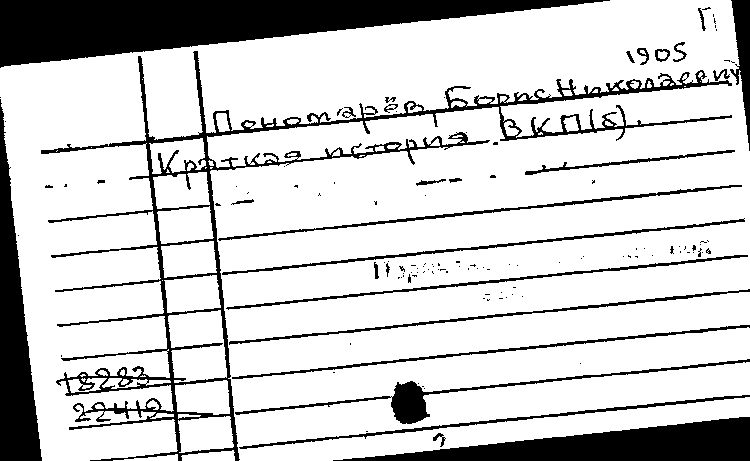 П
1905
Пономарёв, Борис Николаевич
Краткая история ВКП(б).
18283
22419